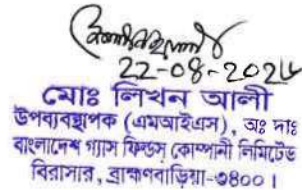 22-08-2024
মোঃ লিখন আলী
উপব্যবস্থাপক (এমআইএস), অঃ দাঃ
বাংলাদেশ গ্যাস ফিল্ডস্ কোম্পানী লিমিটেড
বিরাসার, ব্রাহ্মণবাড়িয়া-৩৪০০।